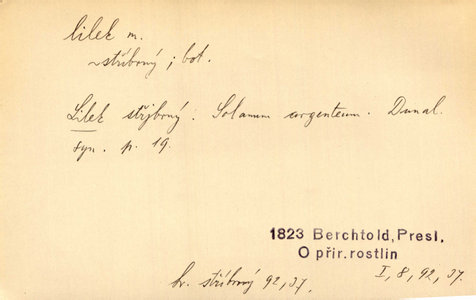 lilek m.
~stříbrný ; bot.
Lilek střjbrný. Solanum argenteum. Dunal.
syn. p. 19.
1823 Berchtold, Presl,
O přir. rostlin
I, 8, 92, 37.
sv. stříbrný 92, 37.